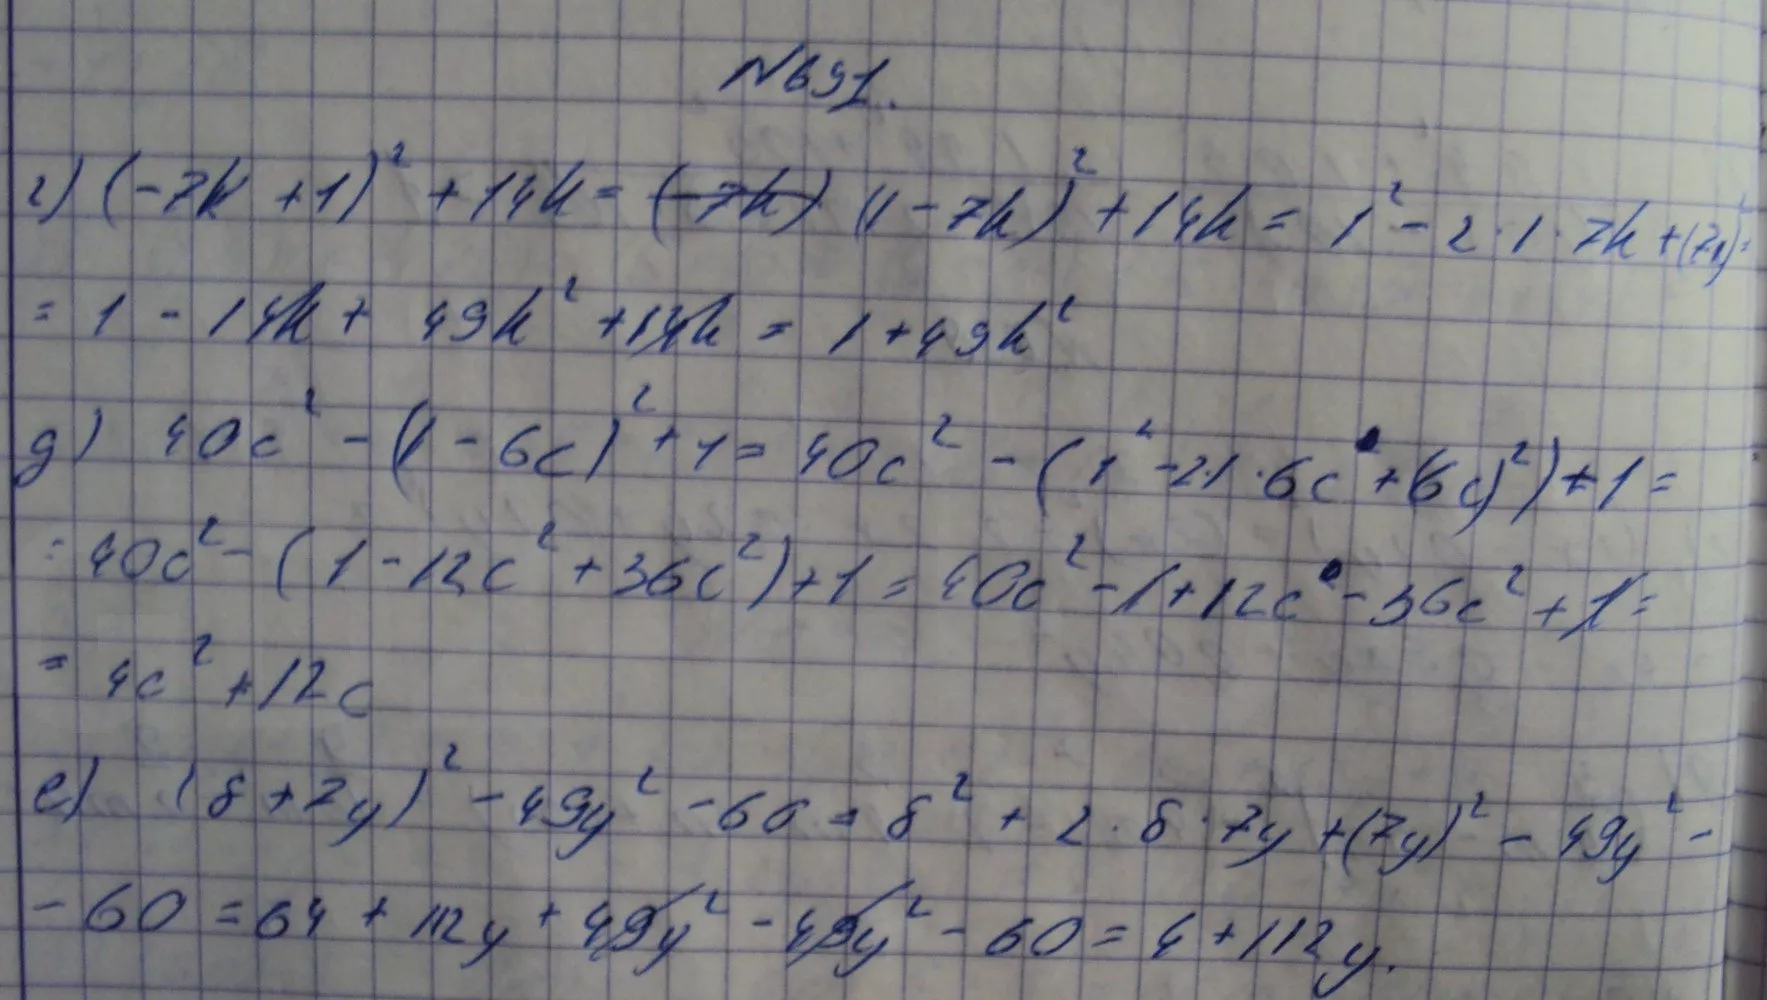 №691.
г) (-7k+1)² + 14k = (1-7k)² + 14k = 1² - 2·1·7k + (7k)² =
= 1 - 14k + 49k² + 14k = 1 + 49k²
д) 40c² - (1-6c)² + 1 = 40c² - (1² - 2·1·6c + (6c)²) + 1 =
= 40c² - (1 - 12c² + 36c²) + 1 = 40c² - 1 + 12c - 36c² + 1 =
= 4c² + 12c
е) (8+7y)² - 49y² - 60 = 8² + 2·8·7y + (7y)² - 49y² -
- 60 = 64 + 112y + 49y² - 49y² - 60 = 4 + 112y.